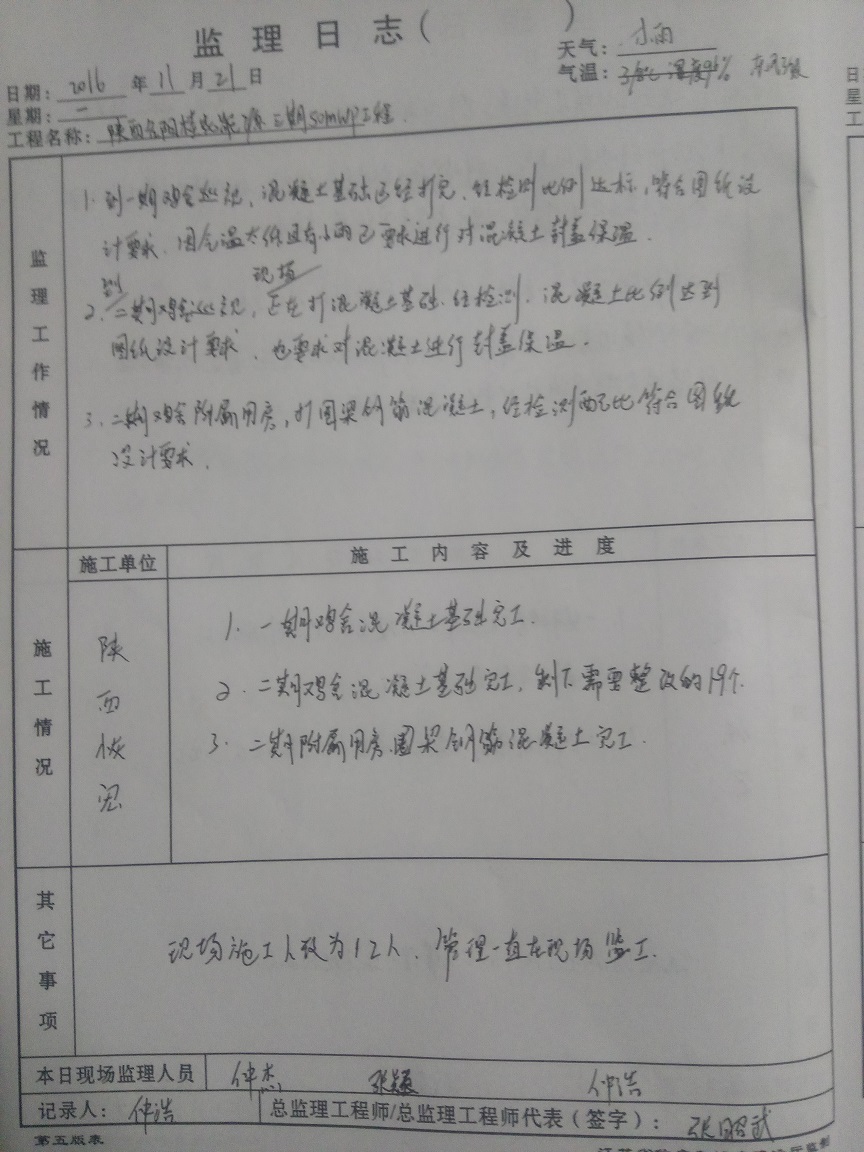 监理日志(        )
天气: 小雨
日期: 2016 年 11 月 21 日
气温: 3/8℃ 湿度96%
星期: 一
工程名称: 陕西合阳 二期50MWP工程.
监理工作情况
1. 到一期鸡舍巡视, 混凝土基础已经打完, 经检测比例达标, 符合图纸设
计要求. 因气温太低且有小雨已要求进行对混凝土封盖保温.
到 现场
2. 二期鸡舍巡视, 正在打混凝土基础. 经检测. 混凝土比例达到
图纸设计要求. 也要求对混凝土进行封盖保温.
3. 二期鸡舍附属用房, 打圈梁钢筋混凝土, 经检测配比符合图纸
设计要求.
施工情况
施工单位 施工内容及进度
陕西
1. 一期鸡舍混凝土基础完工.
2. 二期鸡舍混凝土基础完工, 剩下需要整改的19个.
3. 二期附属用房.圈梁钢筋混凝土完工.
其它事项
现场施工人数为12人. 管理一直在现场监工.
本日现场监理人员 仲杰 张颖 仲浩
记录人: 仲浩 总监理工程师/总监理工程师代表(签字): 张昭武
第五版表